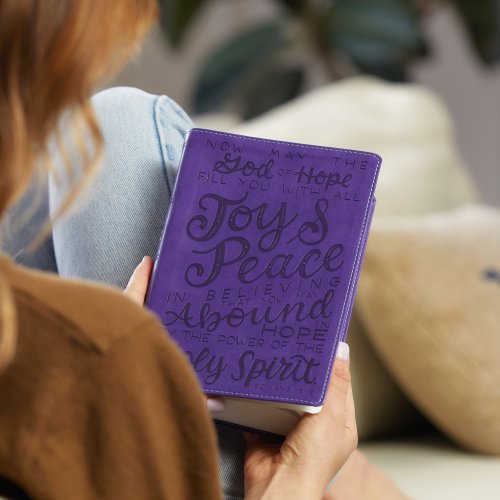 NOW MAY THE
God OF Hope
FILL YOU WITH ALL
Joy &
Peace
IN BELIEVING
THAT YOU MAY
Abound IN
HOPE
Y THE POWER OF THE
oly Spirit.
ROMANS